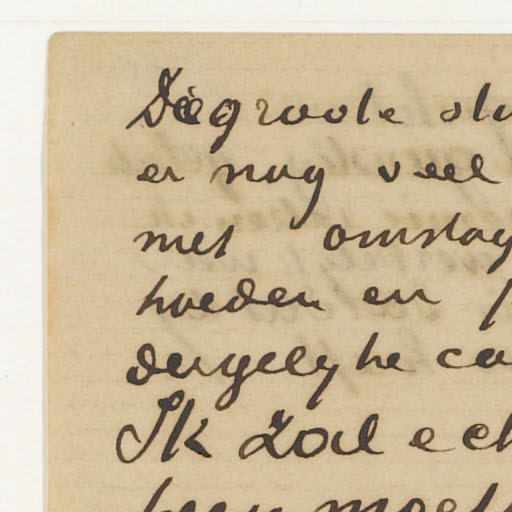 Die groote stu
er nog veel
met omslag
hoeden en
dergelyke ca
Ik zal ech
heen moet